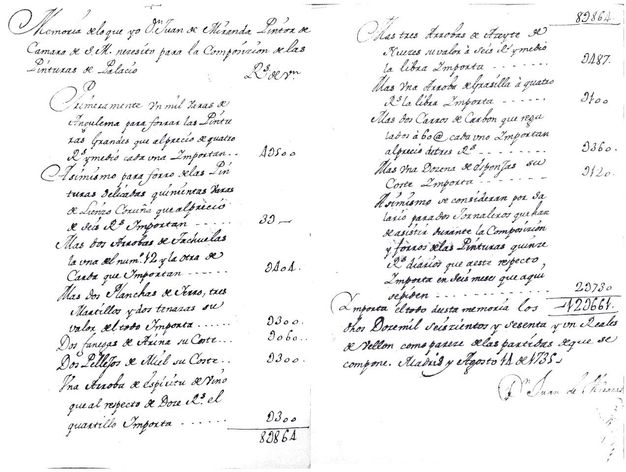 Memoria de lo que yo Dn Juan de Miranda Pintor de
Camara de S.M. necesito para la Composicion de las
Pinturas de Palacio
Rs de vn
Primeramente Vn mil Varas de
Angulema para forrar las Pintu
ras Grandes que al precio de quatro
Rs y medio cada vna Importan . . . 4D500
Asimismo para forro de las Pin
turas delicadas quinientas Varas
de Lienzo Coruña que al precio
de seis Rs Importan 3D
Mas dos Arrobas de Tachuelas
la vna del num. 12 y la otra de
Carda que Importan D404.
Mas dos Planchas de Ierro, tres
Martillos y dos tenazas su
valor de todo Importa D300.
Dos fanegas de Arina su Corte . . . D060.
Dos Pellejos de Miel su Corte . . . D300.
Vna Arroba de espiritu de Vino
que al respecto de Doze Rs el
quartillo Importa D300
8D864
8D864.
Mas tres Arrobas de Azeyte de
Nuezes su valor à seis Rs y medio
la libra Importa D487.
Mas vna Arroba de Grasilla à quatro
Rs la libra Importa D100
Mas dos Carros de Carbon que regu
lados à 60@ cada vno Importan
al precio de tres Rs D360.
Mas vna Dozena de esponjas su
Corte Importa D120.
Asimismo se consideran por sa
lario para dos Jornaleros que han
de asistir durante la Composicion
y forros de las Pinturas quinze
Rs diarios que a este respecto
Importa en seis meses que aqui
se piden 2D730
Importa el todo de esta memoria los 12D661.
dhos Doze mil Seiszientos y Sesenta y vn Reales
de Vellon como pareze de las partidas de que se
compone. Madrid y Agosto 14 de 1735
Dn Juan de Miranda